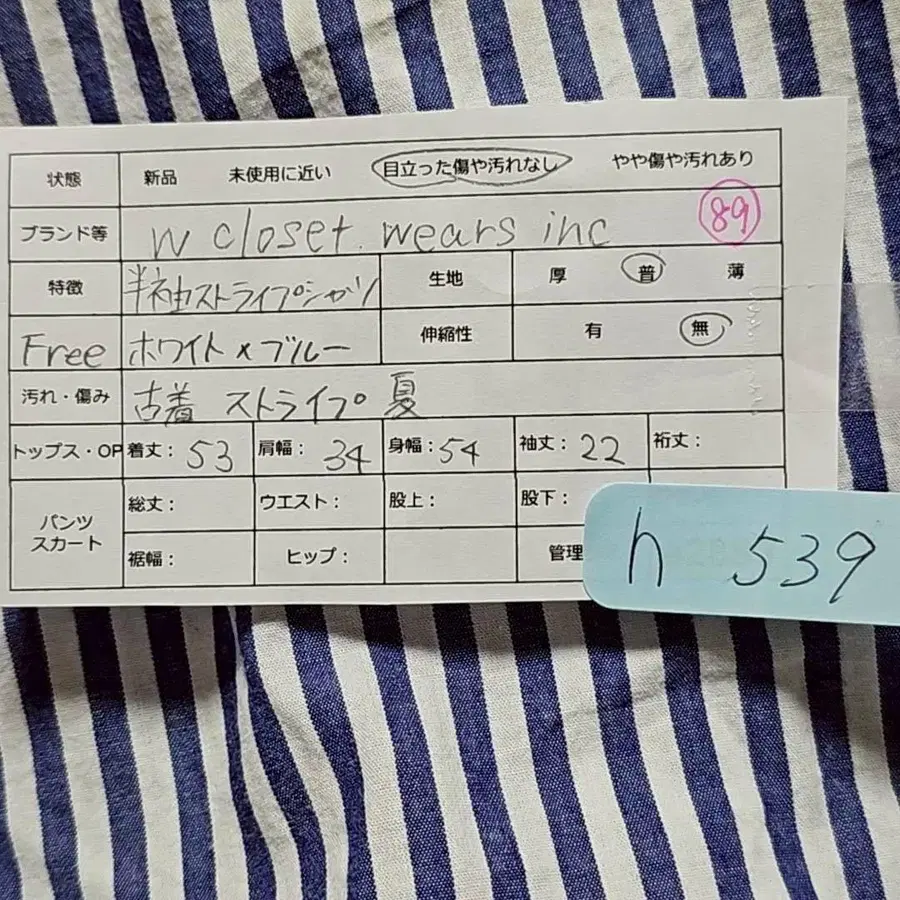 状態 新品 未使用に近い 目立った傷や汚れなし やや傷や汚れあり
ブランド等 w closet. wears inc 89
特徴 半袖ストライプシャツ 生地 厚 普 薄
Free ホワイト×ブルー 伸縮性 有 無
汚れ・傷み 古着 ストライプ 夏
トップス・OP 着丈: 53 肩幅: 34 身幅: 54 袖丈: 22 裄丈:
パンツ スカート 総丈: ウエスト: 股上: 股下:
裾幅: ヒップ: 管理
h 539